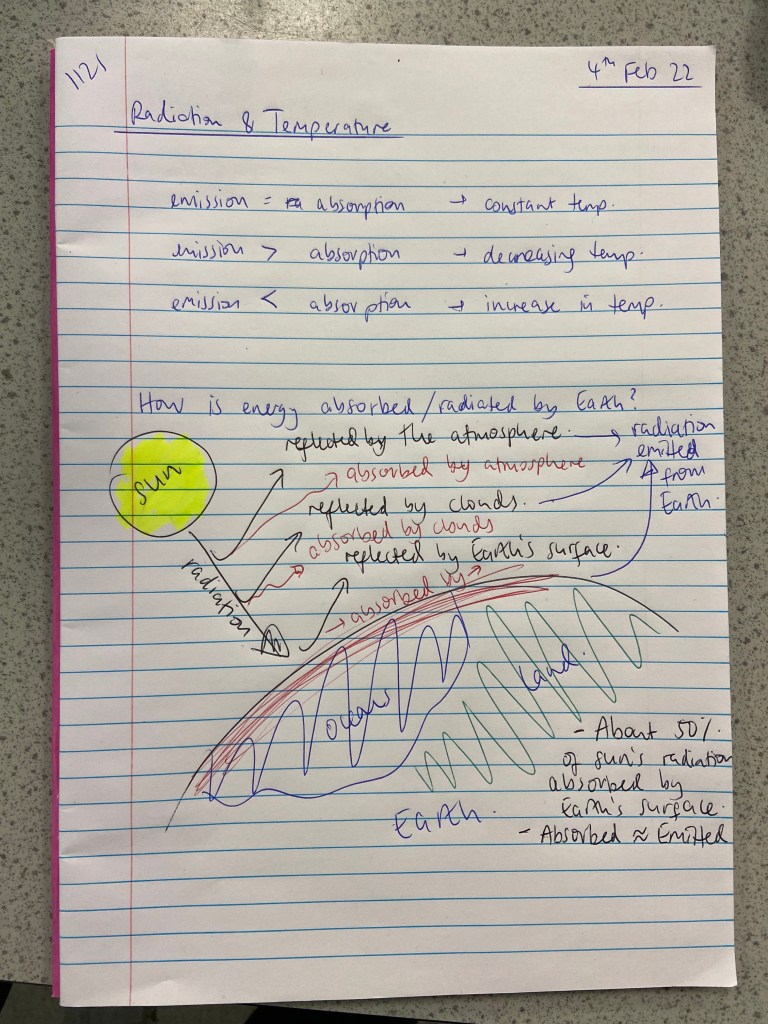 1121
4th Feb 22
Radiation & Temperature
emission = absorption → constant temp.
emission > absorption → decreasing temp.
emission < absorption → increase in temp.
How is energy absorbed/radiated by Earth?
reflected by the atmosphere. → radiation
emitted
from
Earth.
absorbed by atmosphere
reflected by clouds.
absorbed by clouds
reflected by Earth's surface.
→ absorbed by →
sun
radiation
ocean
land.
Earth.
- About 50%
of sun's radiation
absorbed by
Earth's surface.
- Absorbed ≈ Emitted